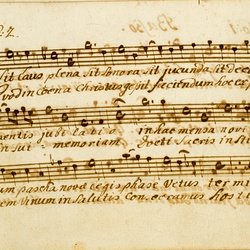 Sit laus plena sit sonora sit jucunda sit dec
quod in cœna Christus gessit faciendum hoc ex
mentis jubilatio in hac mensa novi
in sui memoriam Docti Sacris insti
um pascha novæ legis phase Vetus termi
em vinum in salutis Consecramus Hosti